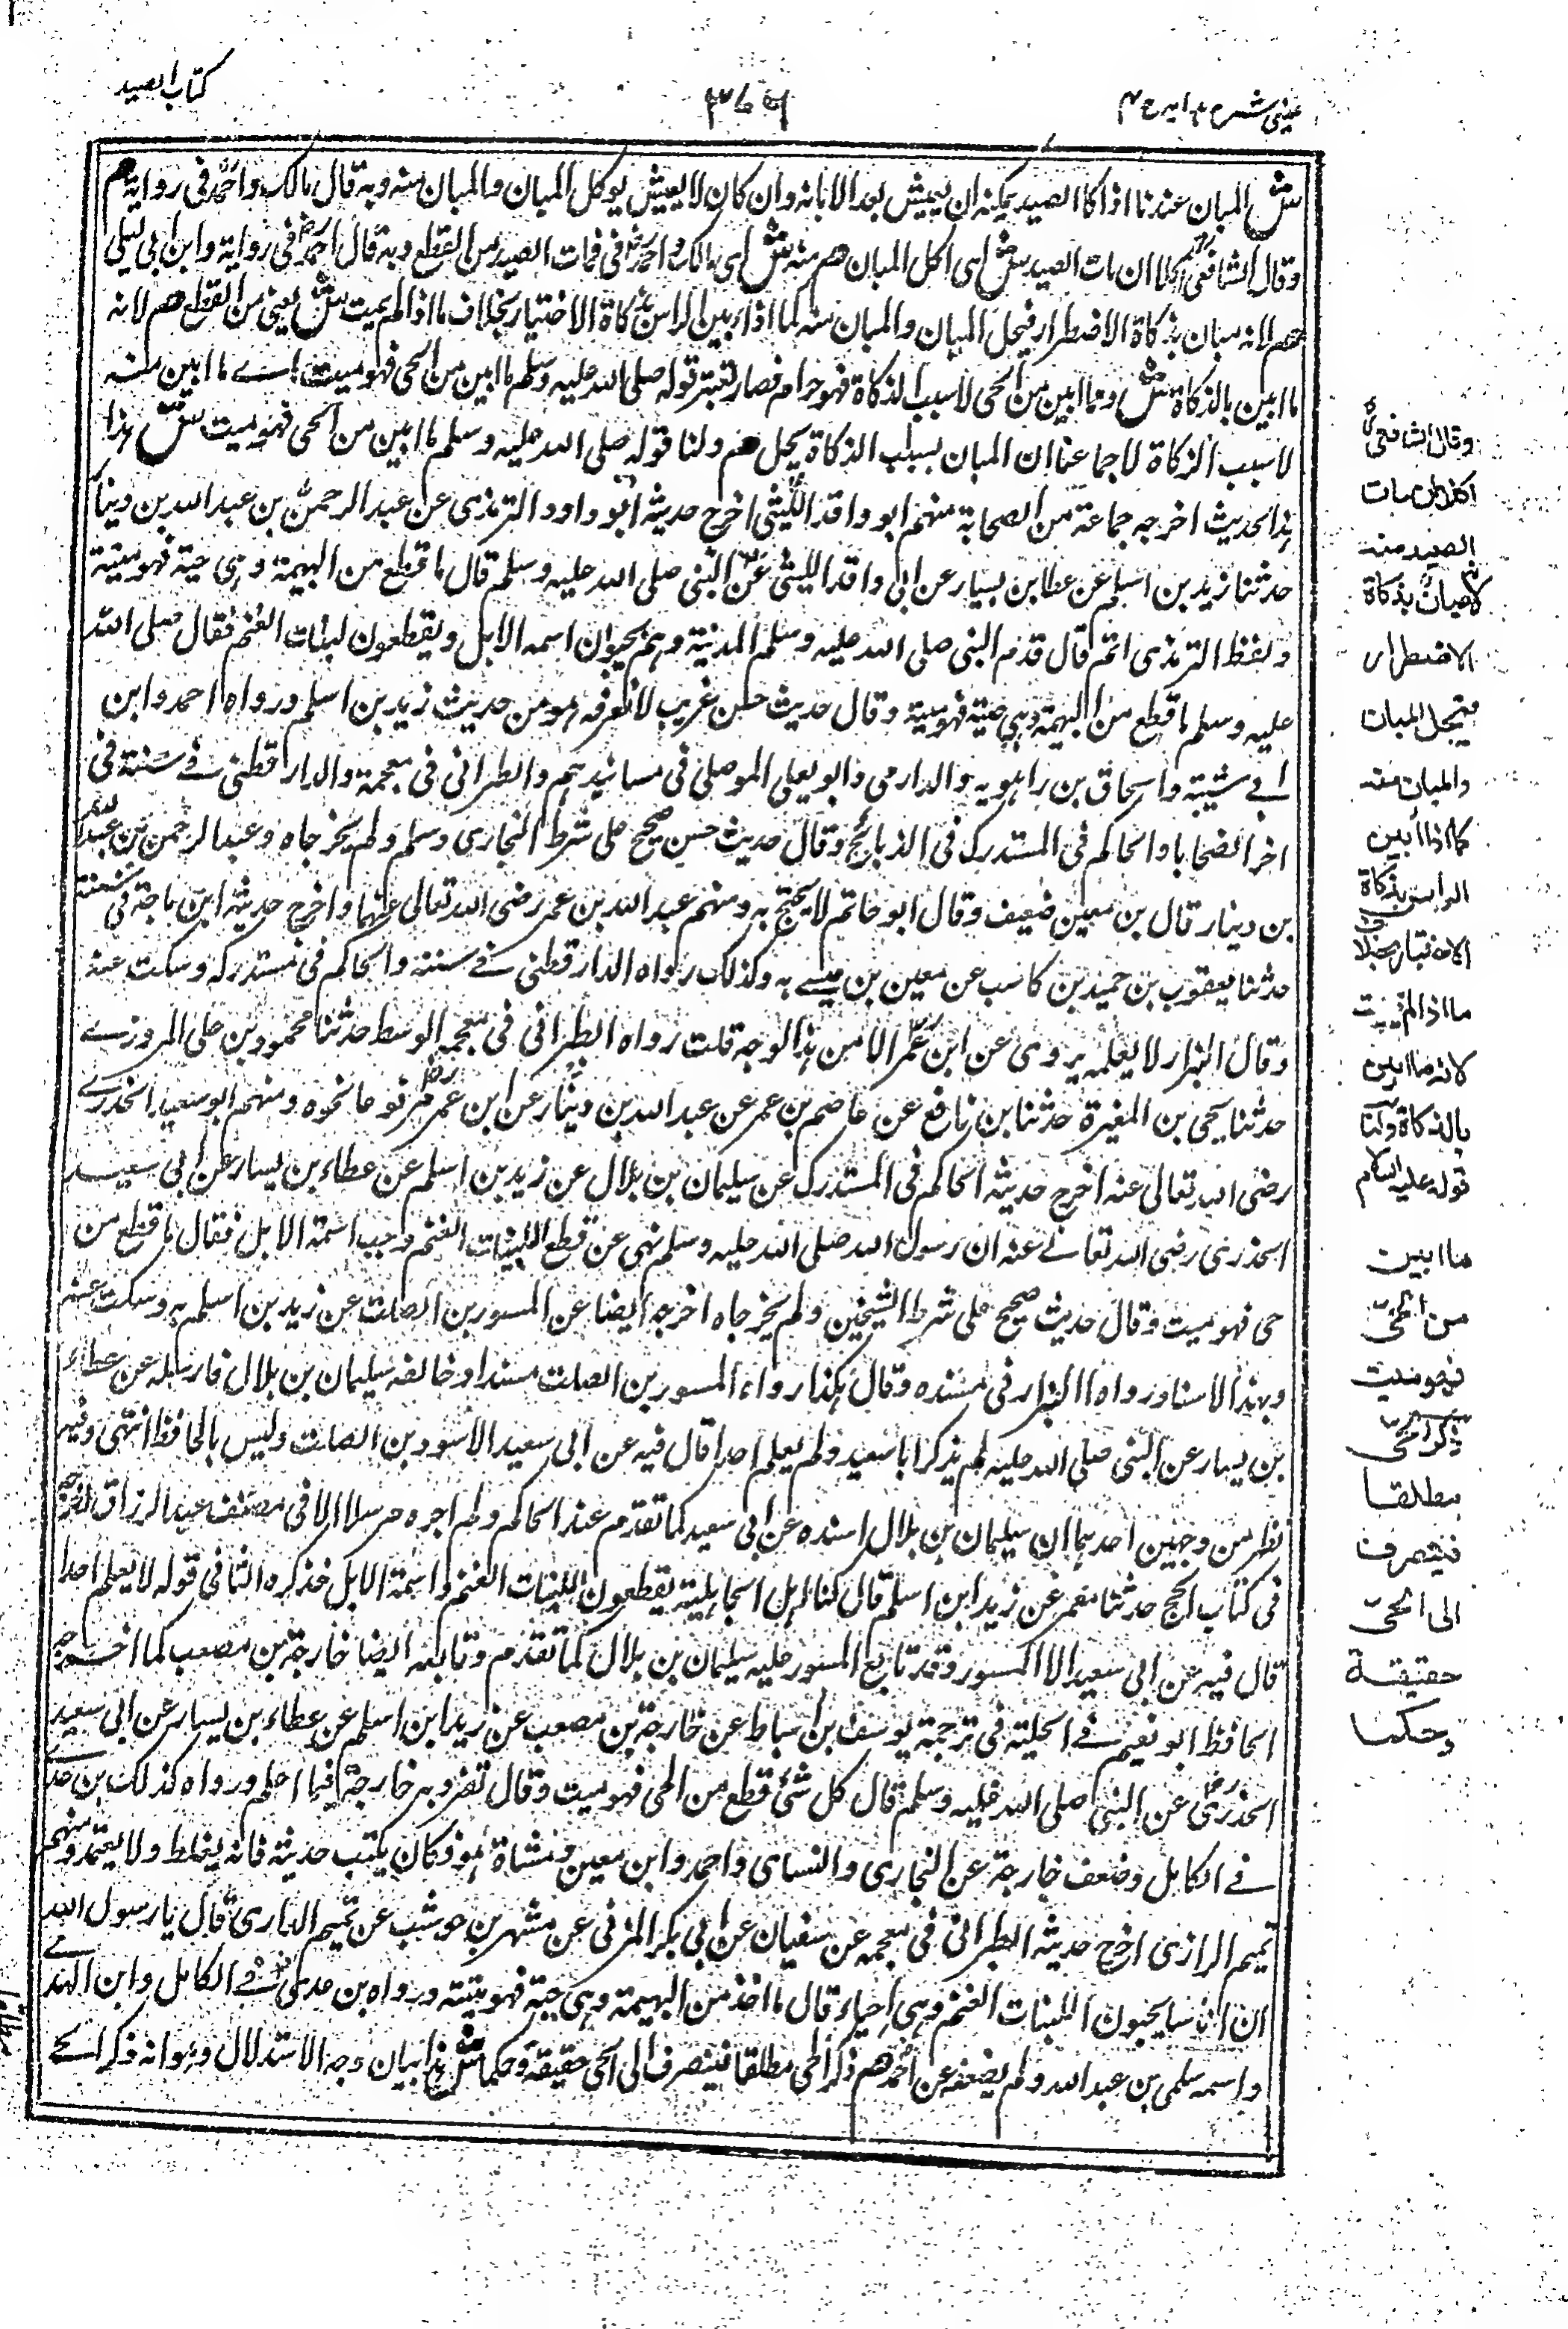 عینی شرح ہدایہ ج ۴
کتاب الصید
ش المبان عندنا اذا كان الصيد يمكنه ان يعيش بعد الابانة وان كان لا يعيش يوكل المبان والمبان منه وبه قال مالك واحمد فى رواية هم
وقال الشافعى اكلا ان مات الصيد منه ش اى اكل المبان هم منه ش اى مالك واحمد فى فمات الصيد من القطع وبه قال احمد فى رواية وابن ابى ليلى
هم لانه مبان بذكاة الاضطرار فيحل المبان والمبان منه كما اذا ابين الراس بذكاة الاختيار بخلاف ما اذا لم يمت ش يعنى من القطع هم لانه
ما ابين بالذكاة ش وما ابين من الحى لا سبب الذكاة فهو حرام فصار تعتبر قوله صلى الله عليه وسلم ما ابين من الحى فهو ميت اے ما ابين منه
لا سبب الزكاة لاجماعنا ان المبان بسبب الذكاة يحل هم ولنا قوله صلى الله عليه وسلم ما ابين من الحى فهو ميت ش هذا
هذا الحديث اخرجه جماعة من الصحابة منهم ابو واقد الليثى اخرج حديثه ابو داود والترمذى عن عبد الرحمن بن عبد الله بن دينار
حدثنا زيد بن اسلم عن عطا بن يسار عن ابى واقد الليثى عن النبى صلى الله عليه وسلم قال ما قطع من البهيمة وهى حية فهو ميتة
ولفظ الترمذى اتم قال قدم النبى صلى الله عليه وسلم المدينة وهم يحبون اسمه الابل ويقطعون لبنات الغنم فقال صلى الله
عليه وسلم ما قطع من البهيمة وهى حية فهو ميتة وقال حديث حسن غريب لا نعرفه هو من حديث زيد بن اسلم ورواه احمد وابن
ابے شيبة واسحاق بن راهويه والدارمى وابو يعلى الموصلى فى مسانيدهم والطبرانى فى معجمة والدار قطنى فے سننه فى
اخر الضحايا والحاكم فى المستدرك فى الذبايح وقال حديث حسن صحيح على شرط البخارى وسلم ولم يخرجاه وعبد الرحمن بن عبد الله
بن دينار قال بن معين ضعيف وقال ابو حاتم لا يحتج به ومنهم عبد الله بن عمر رضى الله تعالى عنهما واخرج حديثه ابن ماجة فى سننه
حدثنا يعقوب بن حميد بن كاسب عن معين بن عيسے به وكذلك رواه الدار قطنى فے سننه والحاكم فى مستدركه وسكت عنه
وقال البزار لا يعلمه يروى عن ابن عمر الا من هذا الوجه قلت رواه الطبرانى فى معجمه الوسط حدثنا محمود بن على المروزے
حدثنا يحى بن المغيرة حدثنا بن نافع عن عاصم بن عمر عن عبد الله بن دينار عن ابن عمر مرفوعا نحوه ومنهم ابو سعيد الخدرے
رضى الله تعالى عنه اخرج حديثه الحاكم فى المستدرك عن سليمان بن بلال عن زيد بن اسلم عن عطاء بن يسار عن ابى سعيد
الخدرى رضى الله تعالے عنه ان رسول الله صلى الله عليه وسلم نهى عن قطع اللبنات الغنم وجب اسنمة الابل فقال ما قطع من
حى فهو ميت وقال حديث صحيح على شرط الشيخين ولم يخرجاه اخرجه ايضا عن المسور بن الصلت عن زيد بن اسلم به وسكت عنه
وبهذا الاسناد رواه البزار فى مسنده وقال هكذا رواه المسور بن الصلت مسندا وخالفه سليمان بن بلال فارسله عن عطاء
بن يسار عن النبى صلى الله عليه لم يذكر ابا سعيد ولم يعلم احدا قال فيه عن ابى سعيد الا سود بن الصلت وليس بالحافظ انتهى وفيه
نظر من وجهين احدهما ان سليمان بن بلال اسنده عن ابى سعيد كما تقدم عند الحاكم ولم اجره مرسلا الا فى مصنف عبد الرزاق اخرجه
فى كتاب الحج حدثنا معمر عن زيد ابن اسلم قال كنا اهل الجاهلية يقطعون اللبنات الغنم واسنمة الابل فذكره الثانى قوله لا يعلم احدا
قال فيه عن ابى سعيد الا المسور وقد تابع المسور عليه سليمان بن بلال كما تقدم وتابعه ايضا خارجة بن مصعب كما اخرجه
الحافظ ابو نعيم فے الحلية فى ترجمة يوسف بن اسباط عن خارجة بن مصعب عن زيد ابن اسلم عن عطاء بن يسار عن ابى سعيد
الخدرى عن النبى صلى الله عليه وسلم قال كل شئ قطع من الحى فهو ميت وقال تفرد به خارجة فيما اعلم ورواه كذلك بن عدے
فے الكامل وضعف خارجة عن البخارى والنساى واحمد وابن معين ومشاة هو وكان يكتب حديثه فانه يغلط ولا يعتمد ومنهم
تميم الرازى اخرج حديثه الطبرانى فى معجمه عن سفيان عن ابى بكر المزنى عن مشهر بن حوشب عن تميم الدارى قال يا رسول الله
ان اناسا يحبون اللبنات الغنم وهى احياء قال ما اخذ من البهيمة وهى حية فهو ميتة ورواه بن عدى فے الكامل وابن الهندے
واسمه سلمى بن عبد الله ولم يضعفه عن احمد هم ذكر الحى مطلقا فينصرف الى الحى حقيقة وحكما ش هذا بيان وجه الاستدلال وهو انه ذكر الحے
وقال الشافعى
اكلا ان مات
الصيد منه
لانه مبان بذكاة
الاضطرار
فيحل المبان
والمبان منه
كما اذا ابين
الراس بذكاة
الاختيار بخلاف
ما اذا لم يمت
لانه ما ابين
بالذكاة ولنا
قوله عليه السلام
ما ابين
من الحى
فهو ميت
ذكر الحى
مطلقا
فينصرف
الى الحى
حقيقة
وحكما